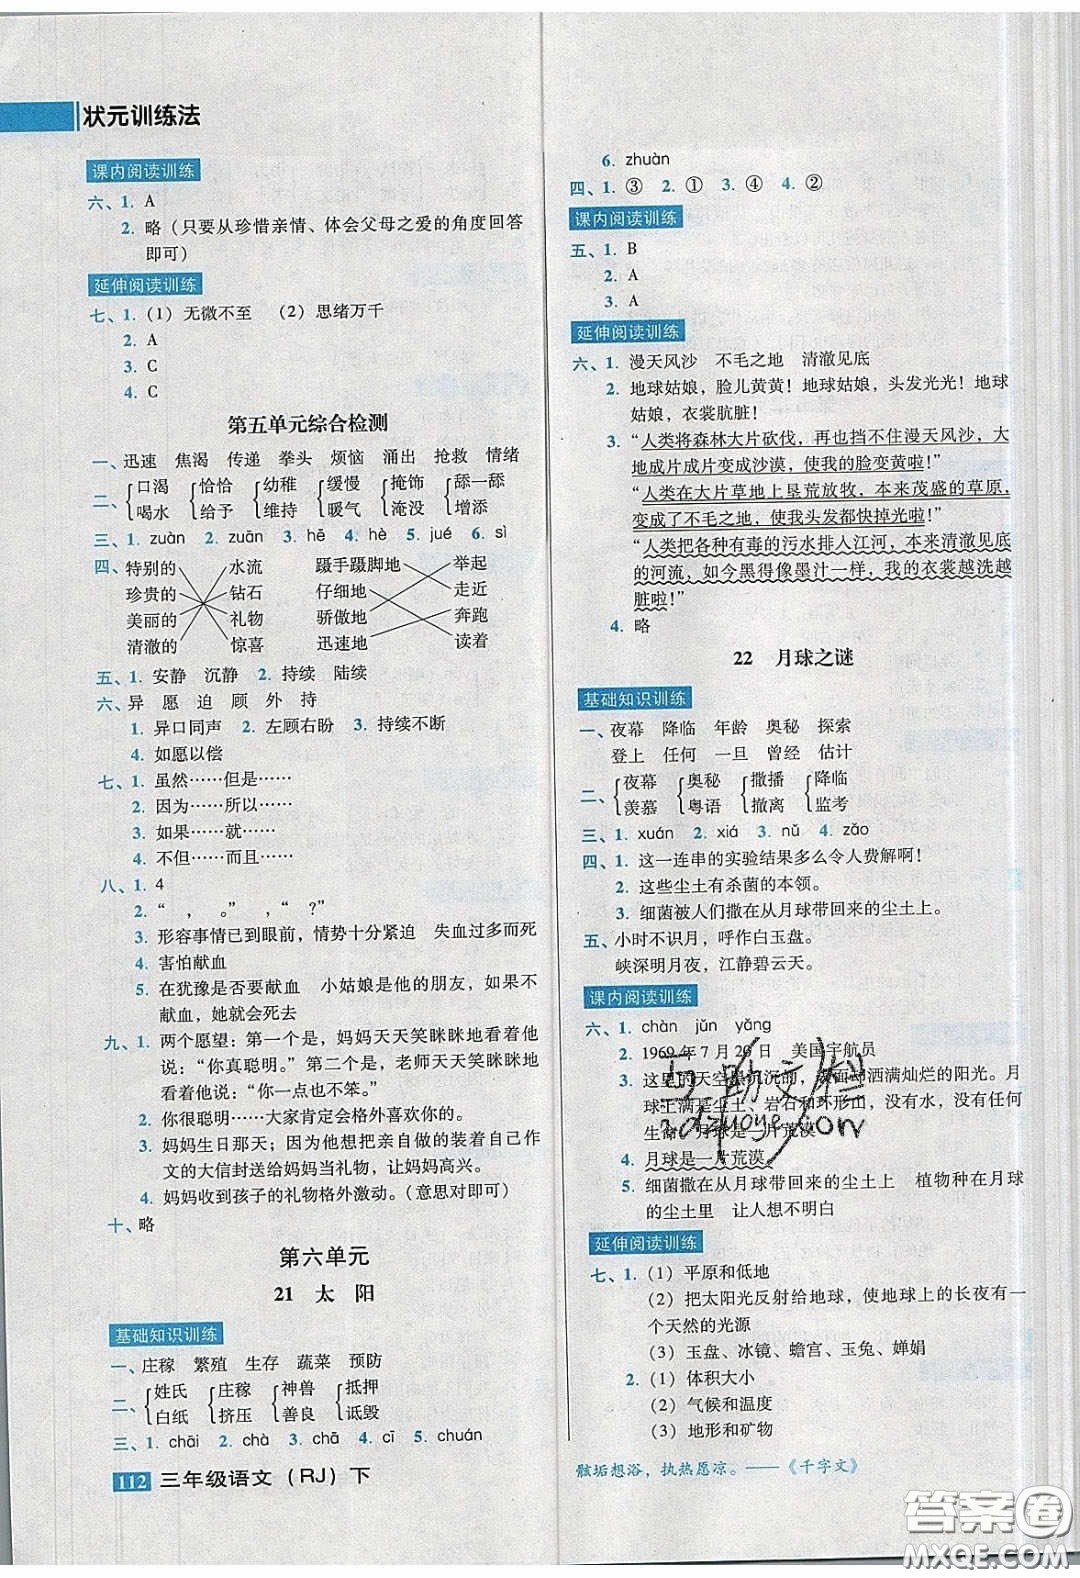 状元训练法
课内阅读训练
六、1. A
2. 略（只要从珍惜亲情、体会父母之爱的角度回答
即可）
延伸阅读训练
七、1.（1）无微不至 （2）思绪万千
2. A
3. C
4. C
第五单元综合检测
一、迅速 焦渴 传递 拳头 烦恼 涌出 抢救 情绪
二、{口渴 {恰恰 {幼稚 {缓慢 {掩饰 {舔一舔
喝水 给予 维持 暖气 淹没 增添
三、1. zuàn 2. zuān 3. hē 4. hè 5. jué 6. sì
四、特别的 水流 蹑手蹑脚地 举起
珍贵的 钻石 仔细地 走近
美丽的 礼物 骄傲地 奔跑
清澈的 惊喜 迅速地 读着
五、1. 安静 沉静 2. 持续 陆续
六、异 愿 迫 顾 外 持
1. 异口同声 2. 左顾右盼 3. 持续不断
4. 如愿以偿
七、1. 虽然……但是……
2. 因为……所以……
3. 如果……就……
4. 不但……而且……
八、1. 4
2. “ ， 。” ，“ ？”
3. 形容事情已到眼前，情势十分紧迫 失血过多而死
4. 害怕献血
5. 在犹豫是否要献血 小姑娘是他的朋友，如果不
献血，她就会死去
九、1. 两个愿望：第一个是，妈妈天天笑眯眯地看着他
说：“你真聪明。”第二个是，老师天天笑眯眯地
看着他说：“你一点也不笨。”
2. 你很聪明……大家肯定会格外喜欢你的。
3. 妈妈生日那天；因为他想把亲自做的装着自己作
文的大信封送给妈妈当礼物，让妈妈高兴。
4. 妈妈收到孩子的礼物格外激动。（意思对即可）
十、略
第六单元
21 太 阳
基础知识训练
一、庄稼 繁殖 生存 蔬菜 预防
二、{姓氏 {庄稼 {神兽 {抵押
白纸 挤压 善良 诋毁
三、1. chāi 2. chà 3. chā 4. cī 5. chuán
112 三年级语文（RJ）下
6. zhuàn
四、1. ③ 2. ① 3. ④ 4. ②
课内阅读训练
五、1. B
2. A
3. A
延伸阅读训练
六、1. 漫天风沙 不毛之地 清澈见底
2. 地球姑娘，脸儿黄黄！地球姑娘，头发光光！地球
姑娘，衣裳肮脏！
3. “人类将森林大片砍伐，再也挡不住漫天风沙，大
地成片成片变成沙漠，使我的脸变黄啦！”
“人类在大片草地上垦荒放牧，本来茂盛的草原，
变成了不毛之地，使我头发都快掉光啦！”
“人类把各种有毒的污水排入江河，本来清澈见底
的河流，如今黑得像墨汁一样，我的衣裳越洗越
脏啦！”
4. 略
22 月球之谜
基础知识训练
一、夜幕 降临 年龄 奥秘 探索
登上 任何 一旦 曾经 估计
二、{夜幕 {奥秘 {撒播 {降临
羡慕 粤语 撤离 监考
三、1. xuán 2. xiá 3. nǔ 4. zǎo
四、1. 这一连串的实验结果多么令人费解啊！
2. 这些尘土有杀菌的本领。
3. 细菌被人们撒在从月球带回来的尘土上。
五、小时不识月，呼作白玉盘。
峡深明月夜，江静碧云天。
课内阅读训练
六、1. chàn jǔn yǎng
2. 1969年7月20日 美国宇航员
3. 这里的天空黑沉沉的，表面却洒满灿烂的阳光。月
球上满是尘土、岩石和环形山，没有水，没有任何
生命。月球是一片荒漠。
4. 月球是一片荒漠。
5. 细菌撒在从月球带回来的尘土上 植物种在月球
的尘土里 让人想不明白
延伸阅读训练
七、1.（1）平原和低地
（2）把太阳光反射给地球，使地球上的长夜有了
一个天然的光源
（3）玉盘、冰镜、蟾宫、玉兔、婵娟
2.（1）体积大小
（2）气候和温度
（3）地形和矿物
骸垢想浴，执热愿凉。——《千字文》
答案圈
MXQE.COM